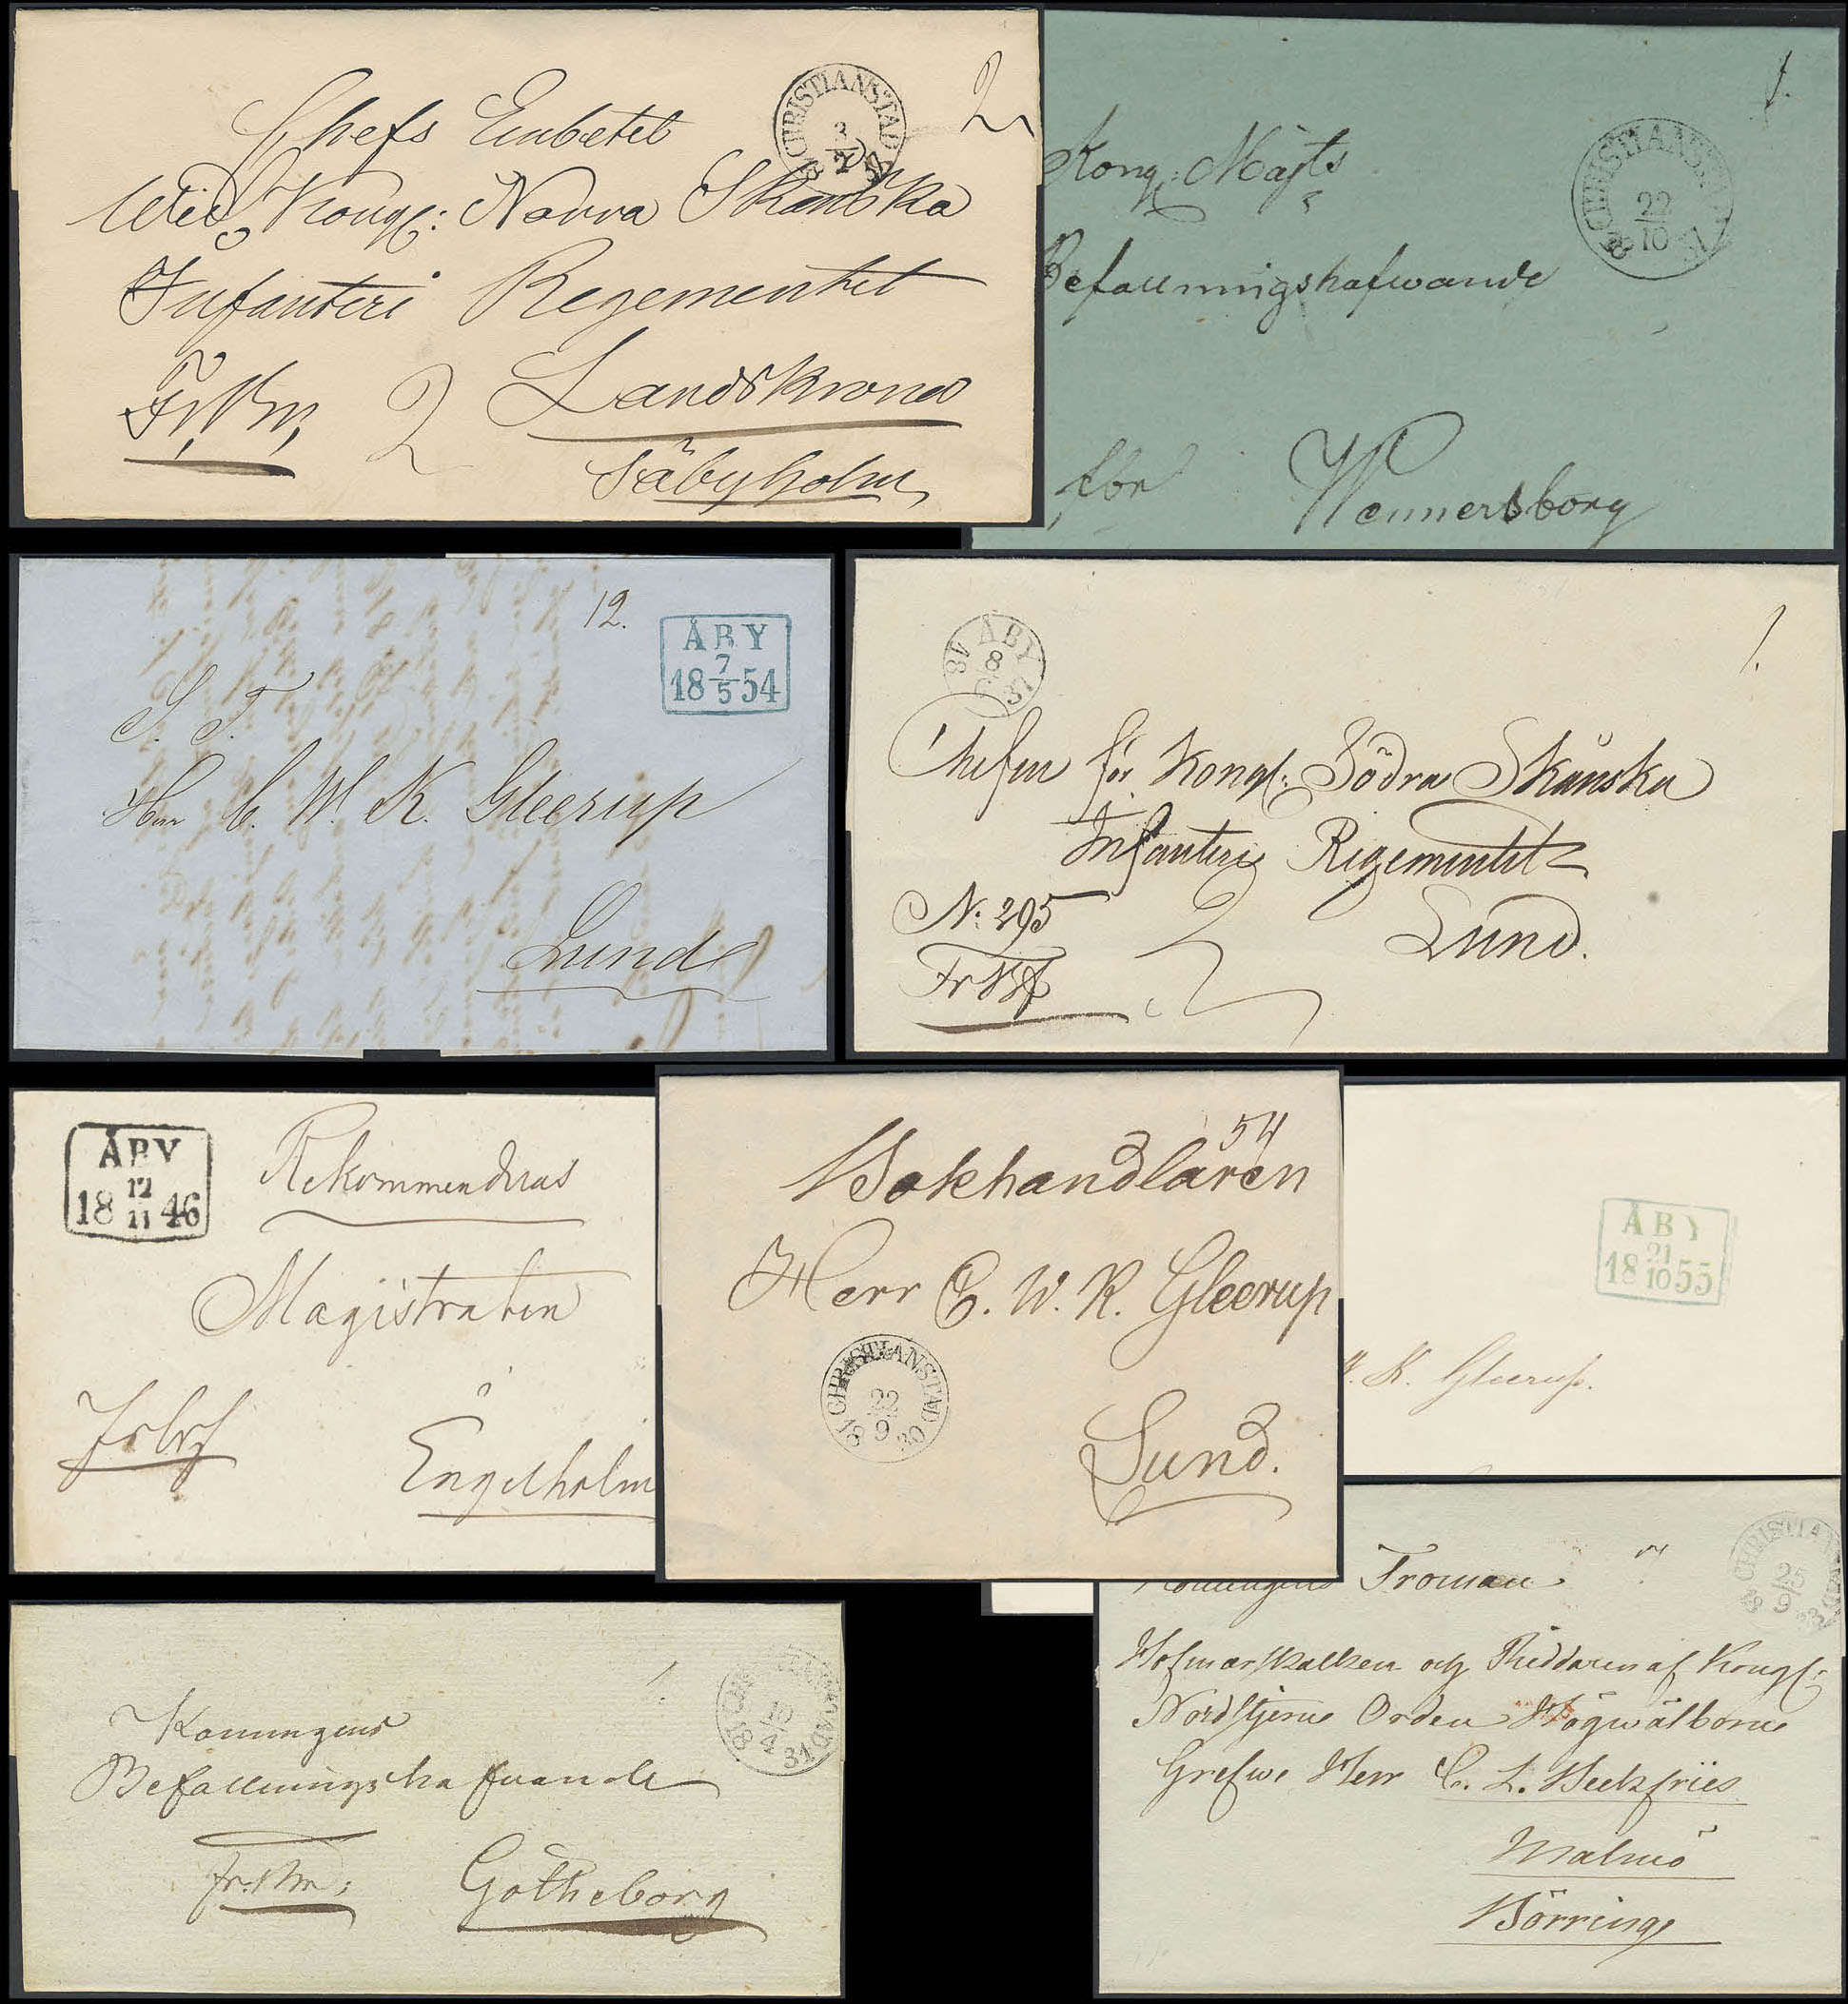 CHRISTIANSTAD
3
2
Chefs Embetet
Wid Kongl: Norra Skånska
Infanteri Regementet
Landskrona
2
Säbyholm
1.
CHRISTIANSTAD
22
10
Kong: Majts
Befallningshafwande
för Wennersborg
12.
ÅBY
18 7/5 54
S. T.
Herr C. W. K. Gleerup
Lund
ÅBY
8
1837
1.
Chefen för Kongl: Södra Skånska
Infanteri Regementet
N: 295
2
Lund.
ÅBY
18 12/11 46
Rekommenderas
Magistraten
Engelholm
54
Bokhandlaren
Herr C. W. K. Gleerup
CHRISTIANSTAD
22
9
1830
Lund.
ÅBY
18 21/10 55
K. Gleerup.
1.
Konungens
Befallningshafvande
fr. Br:
Götheborg
CHRISTIANSTAD
25
9
Konungens Troman
Hofmarskalken och Riddaren af Kongl:
Nordstjerne Orden Högwälborne
Grefwe Herr C. L. Beckfriis
Malmö
Börringe